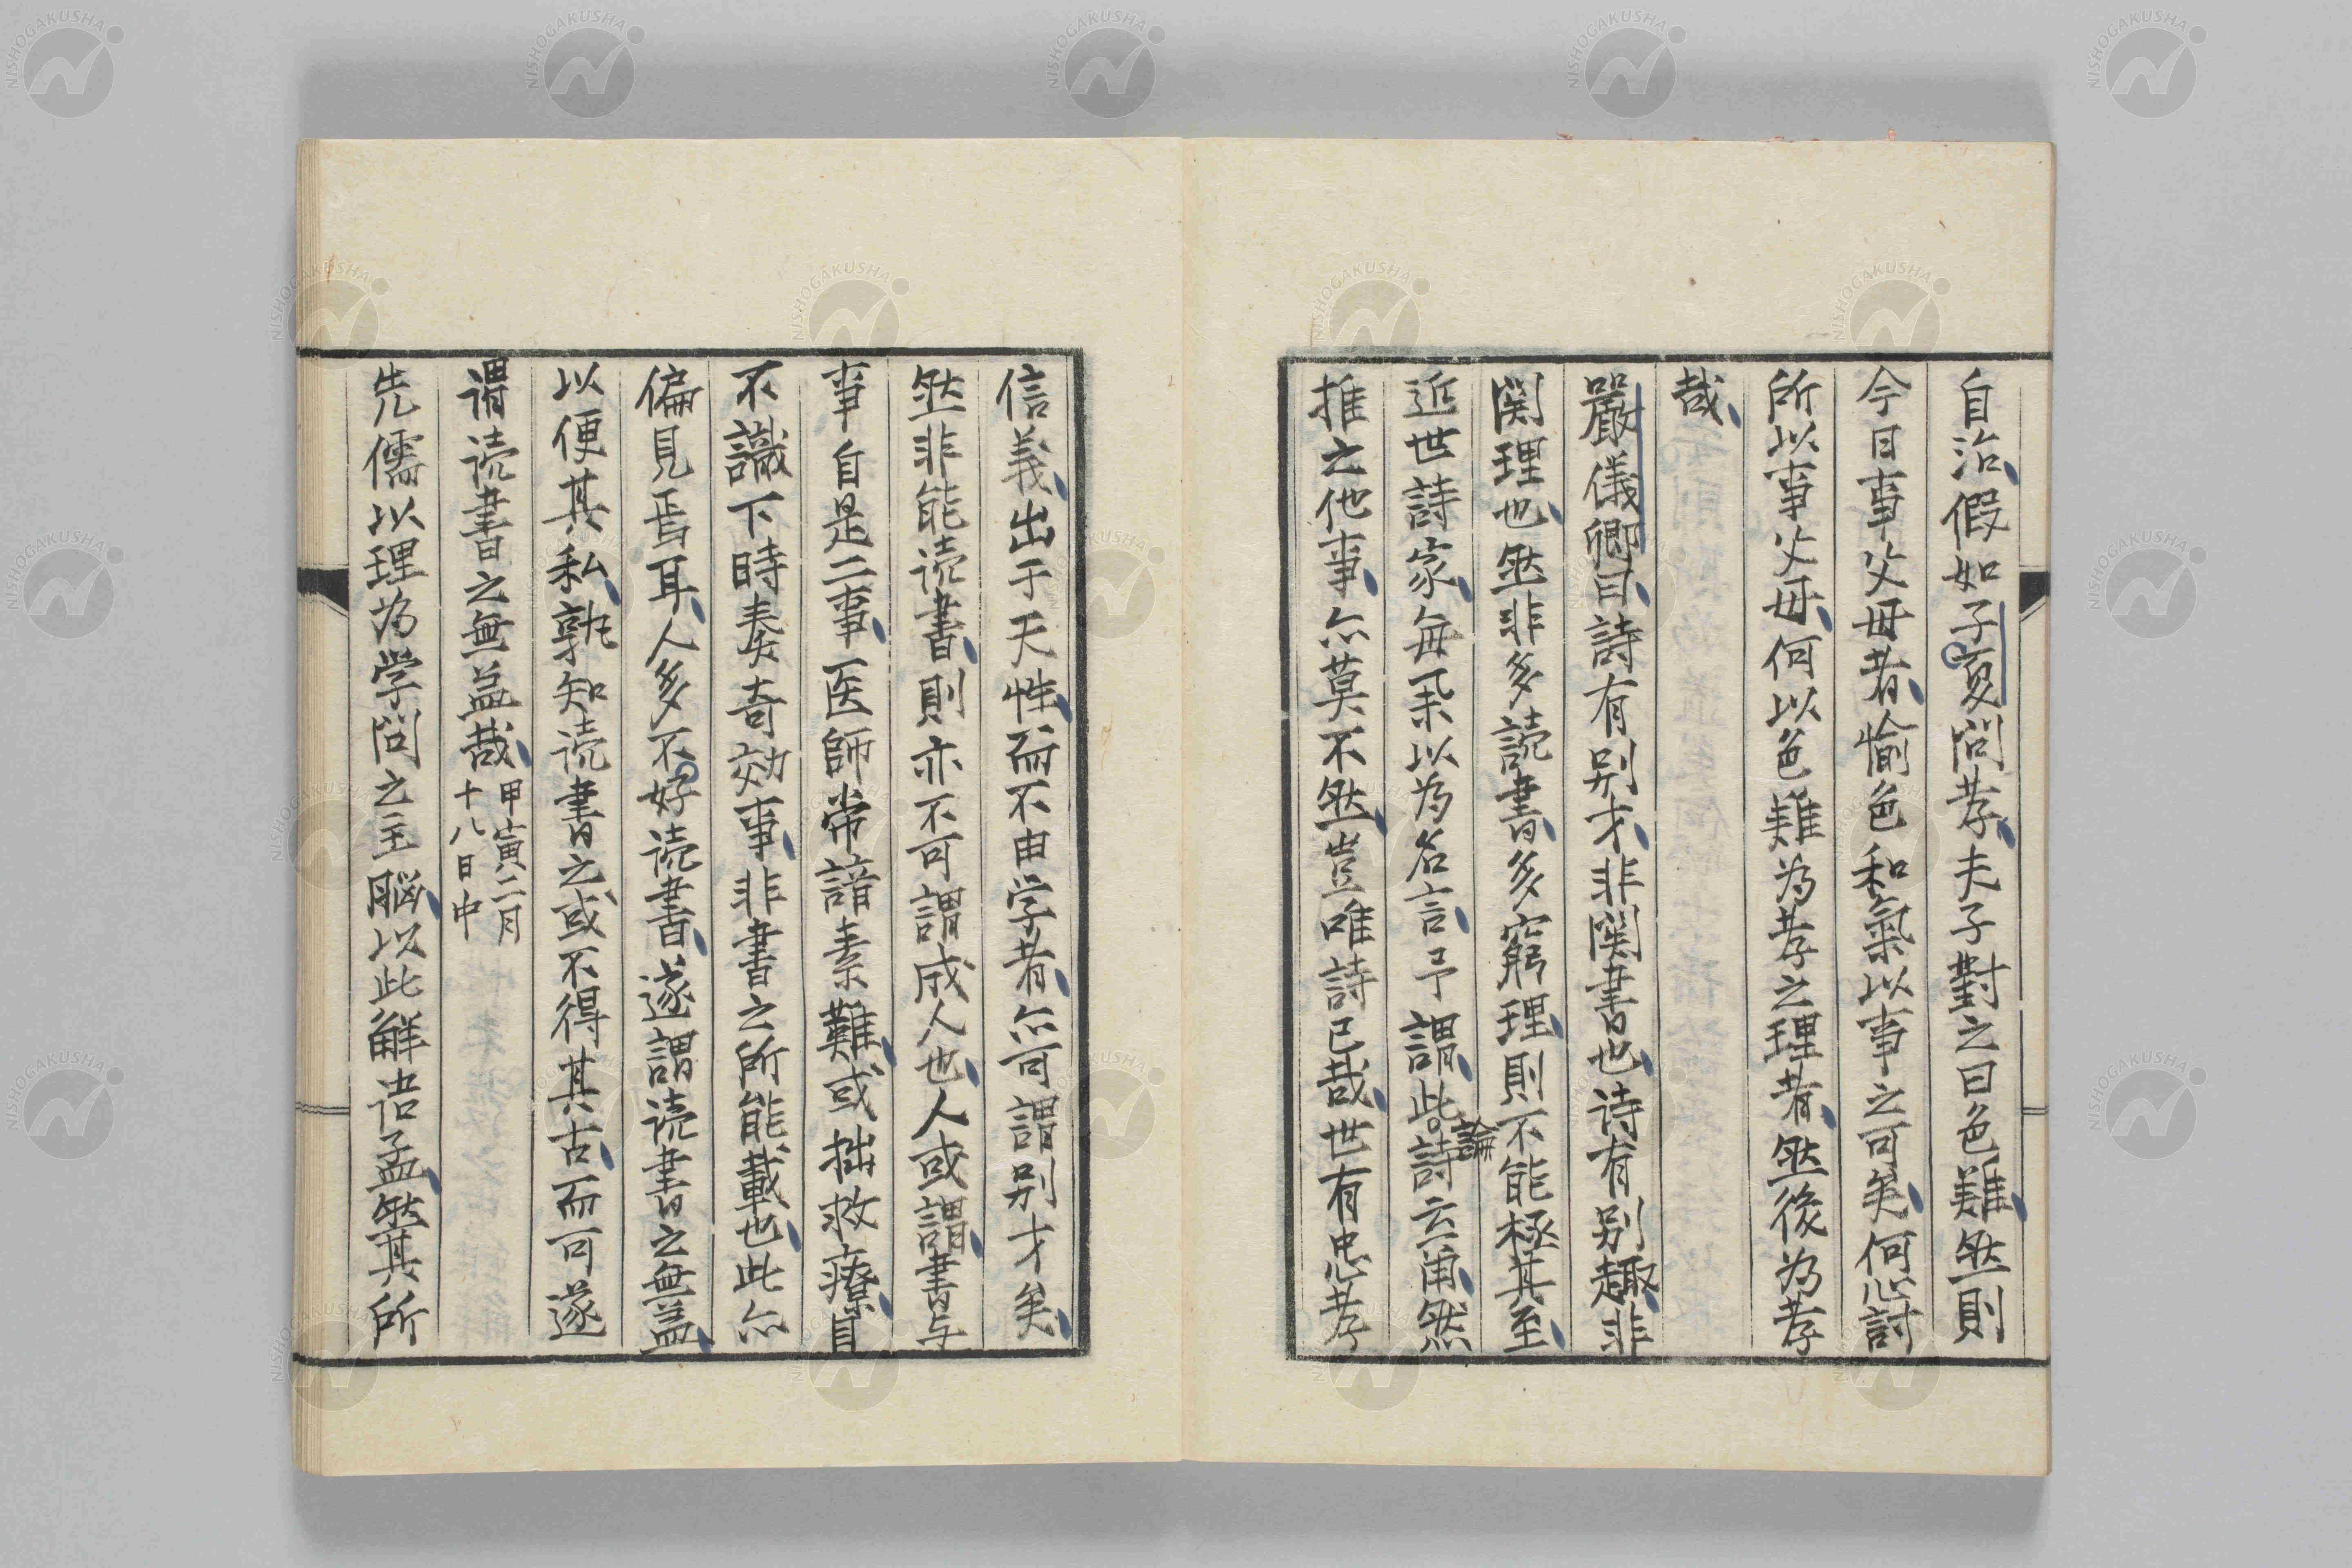 自治假如子夏問孝夫子對之曰色難然則
今日事父母者愉色和氣以事之可矣何必討
所以事父母何以色難為孝之理者然後為孝
哉
嚴儀卿曰詩有別才非関書也詩有別趣非
関理也然非多読書多窮理則不能極其至
近世詩家每采以為名言予謂此詩云爾然
論
推之他事亦莫不然豈唯詩已哉世有忠孝
信義出于天性而不由学者亦可謂別才矣
然非能読書則亦不可謂成人也人或謂書与
事自是二事医師常諳素難或拙救療目
不識下時奏奇効事非書之所能載也此亦
偏見焉耳人多不好読書遂謂読書之無益
以便其私孰知読書之或不得其古而可遂
謂読書之無益哉
甲寅二月
十八日中
先儒以理為学問之主脳以此解语孟然其所
NISHOGAKUSHA